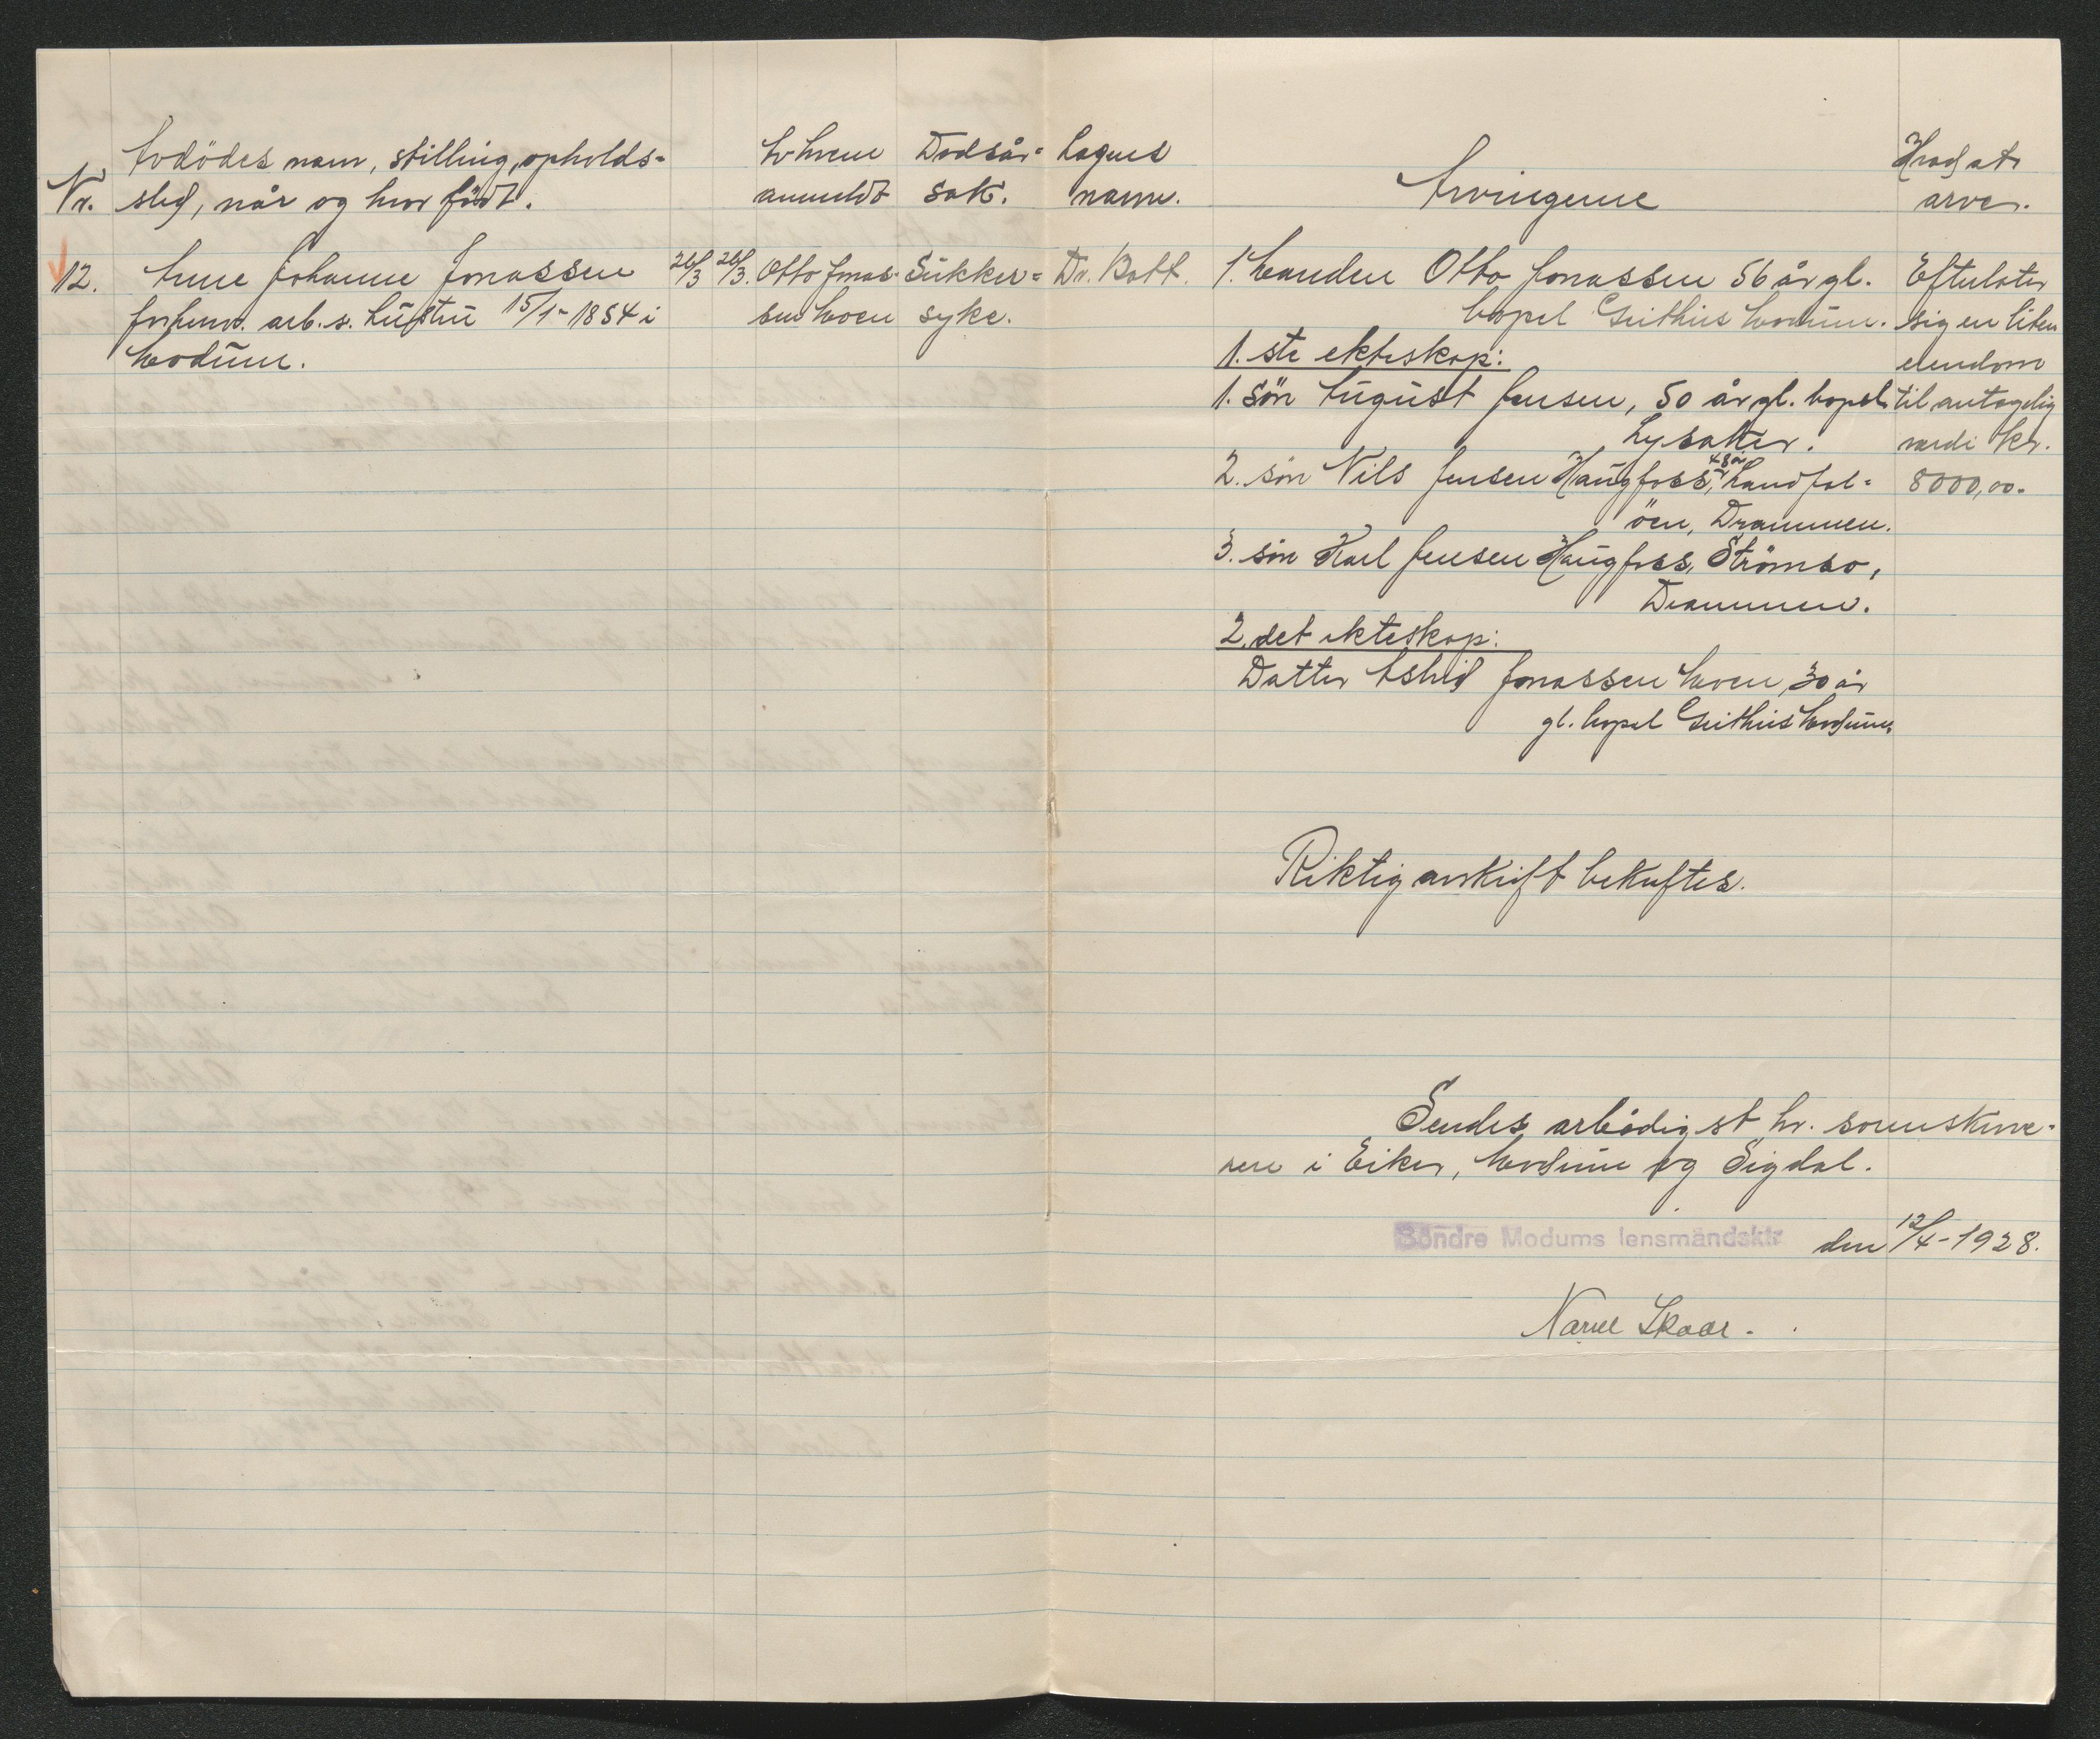 Nr.
Avdödes navn, stilling, opholds-
sted, når og hvor födt.
Av hvem
anmeldt
Dödsår-
sak.
Lægens
navn.
Arvingerne
Hvad at
arve.
12. Anne Johanne Jonassen
forhenv. arb. s. hustru 15/1-1854 i
Modum.
26/3
26/3.
Otto Jonas-
sen Moen
Sukker-
syke.
Dr. Bott.
1. Manden Otto Jonassen 56 år gl.
bopel Geithus Modum.
1. ste ekteskap:
1. sön August Jensen, 50 år gl. bopel
Lysaker.
2. sön Nils Jensen Haugfoss, 48 år, Landfal-
öen, Drammen.
3. sön Karl Jensen Haugfoss, Strömsö,
Drammen.
2. det ekteskap:
Datter Astrid Jonassen Moen, 30 år
gl. bopel Geithus Modum.
Efterlater
sig en liten
eiendom
til antagelig
verdi kr.
8000,00.
Riktig avskrift bekreftes.
Sendes ærbödigst hr. sorenskrive-
ren i Eiker, Modum og Sigdal.
Söndre Modums lensmandsktr. den 12/4-1928.
Skaar.